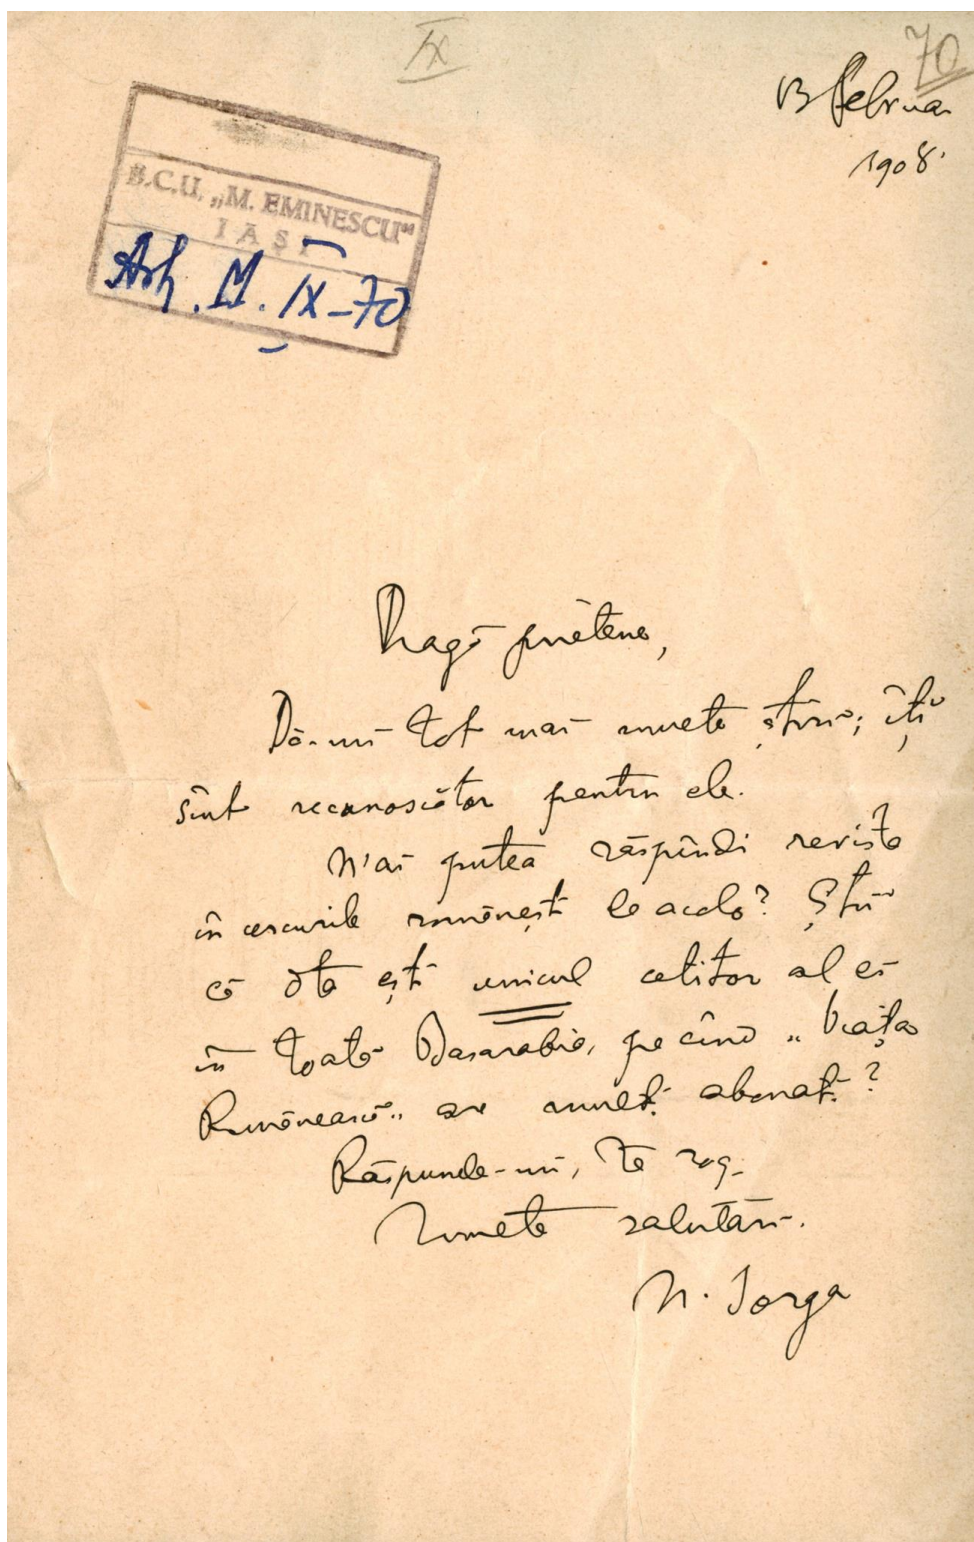 IX
70
13 Februar
1908.
B.C.U. „M. EMINESCU"
IAȘI
Arh. M. IX-70
Dragă prietene,
Dă-mi tot mai multe știri; îți
sînt recunoscător pentru ele.
N'ai putea răspîndi revista
în cercurile romănești de acolo? Știi
că dta ești unicul cetitor al ei
în toată Basarabia, pe cînd „Viața
Romănească" are mulți abonați?
Răspunde-mi, te rog.
Multe salutări.
N. Iorga